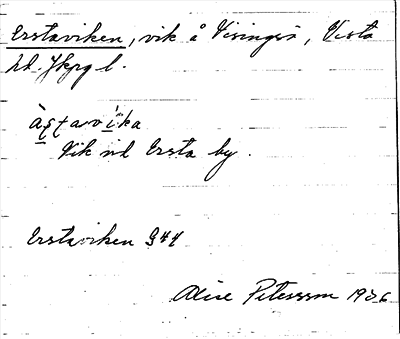 Erstaviken, vik å Visingsö, Vista
hd. Jkpg l.
àṣtavi̇̀ka
Vik vid Ersta by.
Erstaviken G44
Alice Petersson 1936